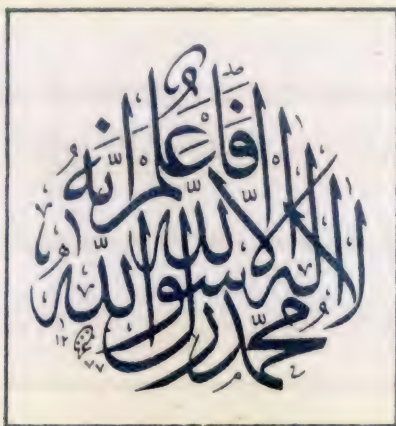 فَاعْلَمْ أَنَّهُ
لا إله إلا الله
محمد رسول الله
١٢٧٧